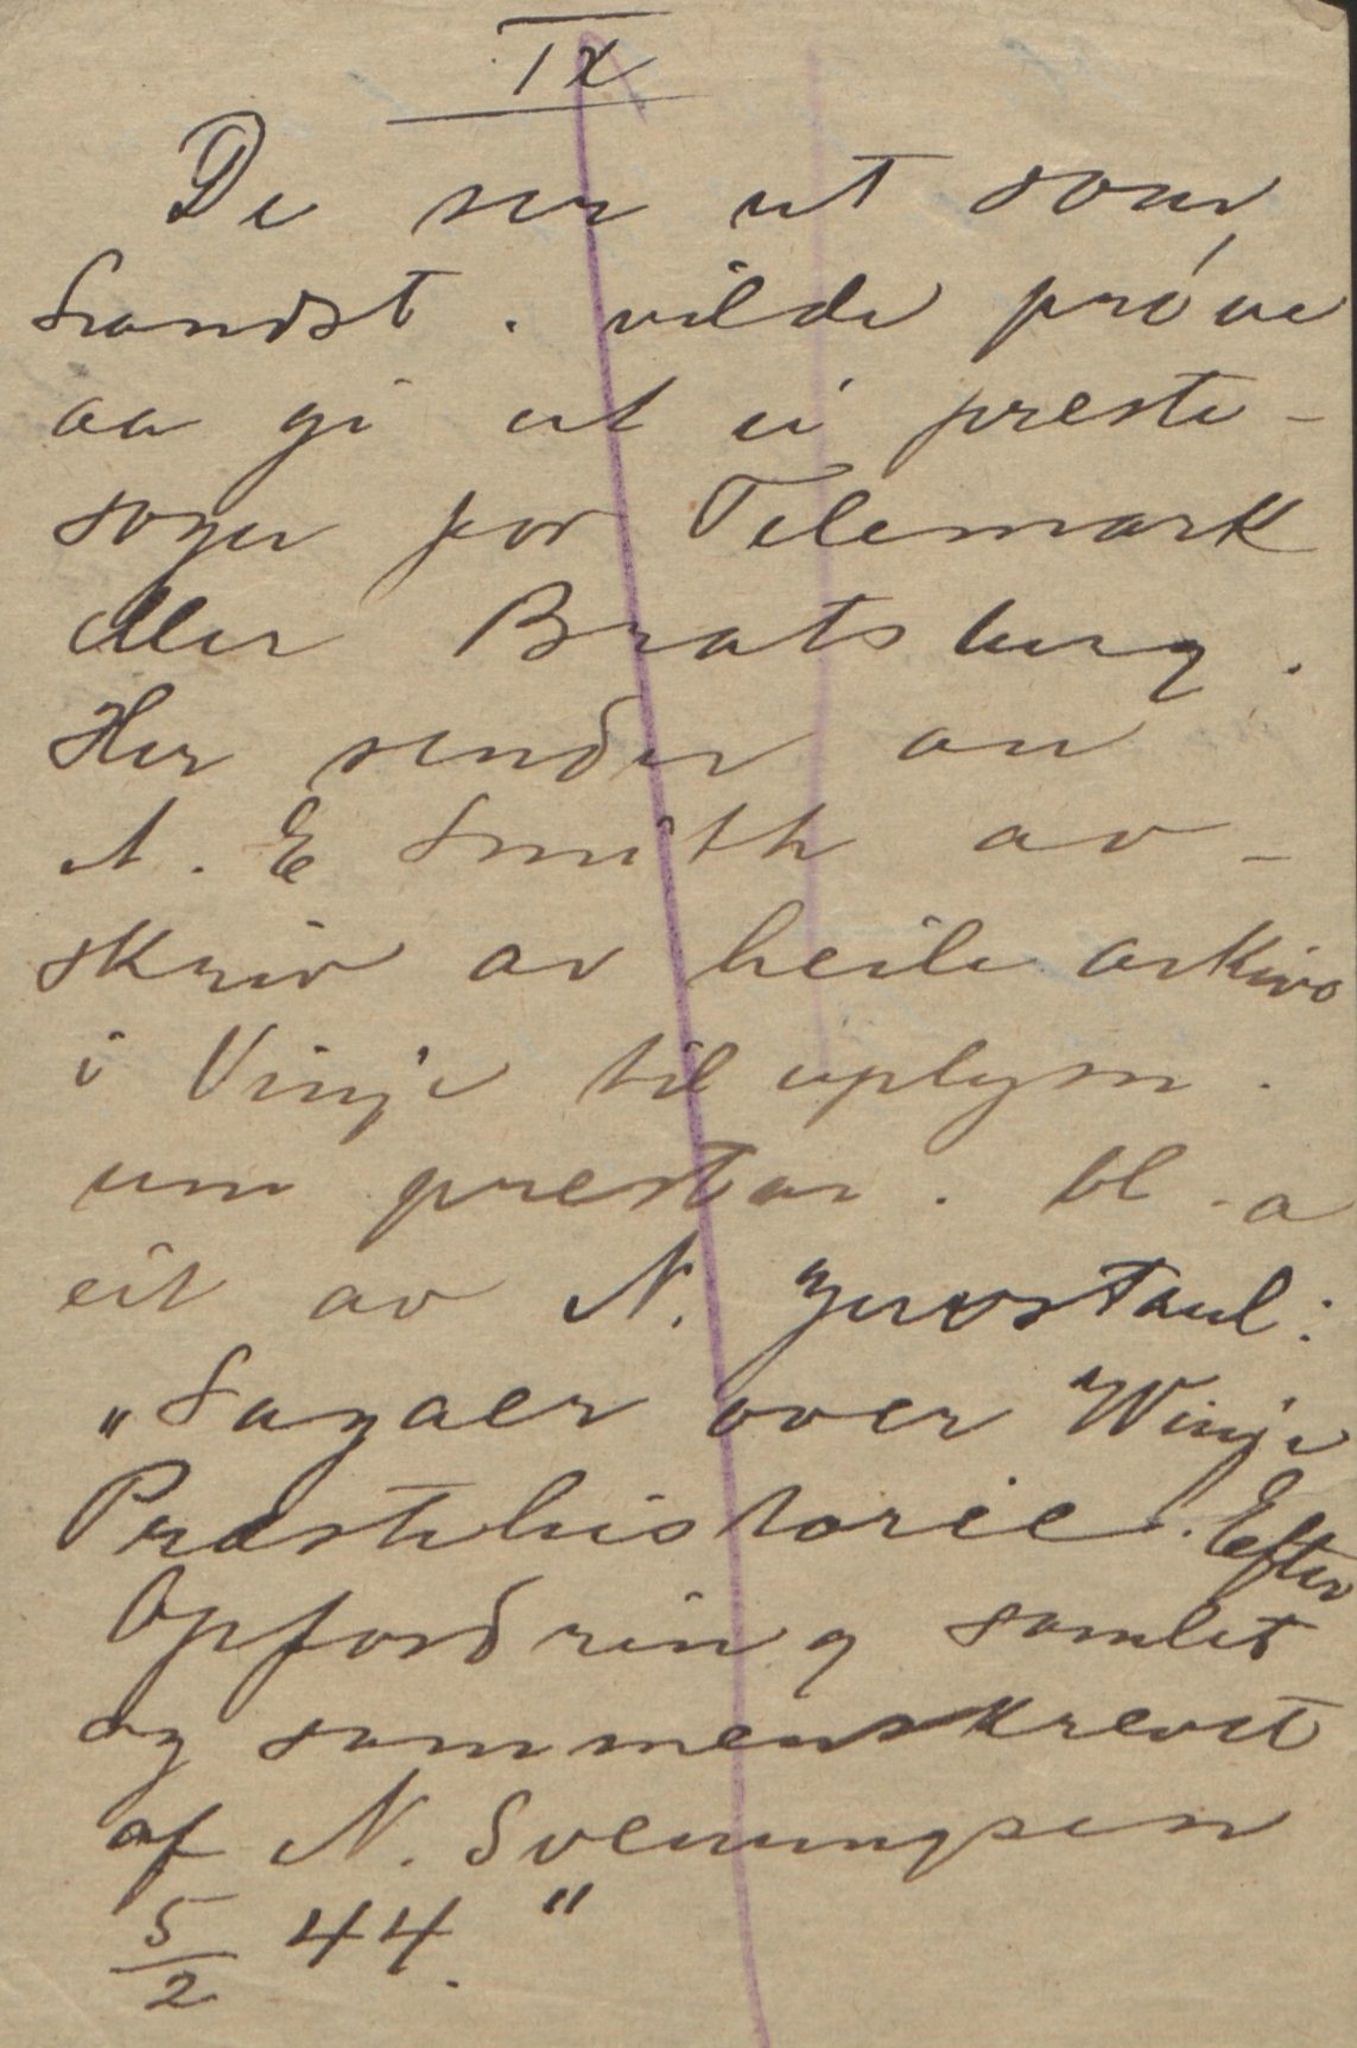 IX
De ser ut som
Landst. vilde próve
aa gi ut ei preste-
soge for Telemark
eller Bratsberg.
Her sender an
A. E Smith av-
skriv av heile arkivo
i Vinje til uplysn.
um prestar. bl. a
eit av N. Juvstaul:
"Sagaer over Winje
Præstehistorie. Efter
Opfordring samlet
og sammenskrevet
af N. Svenungsen
5/2 44."